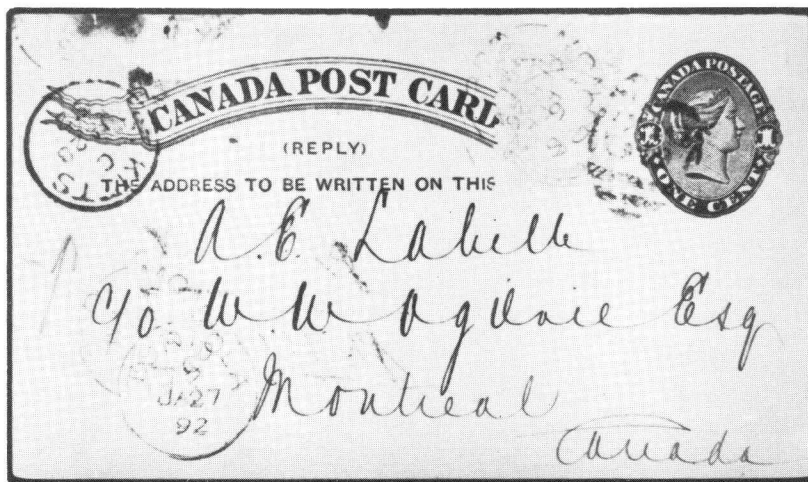 CANADA POST CARD
(REPLY)
THE ADDRESS TO BE WRITTEN ON THIS
CANADA POSTAGE
1 1
ONE CENT
A. E. Labelle
c/o W. W. Ogilvie Esq
Montreal
Canada
JA 27
92